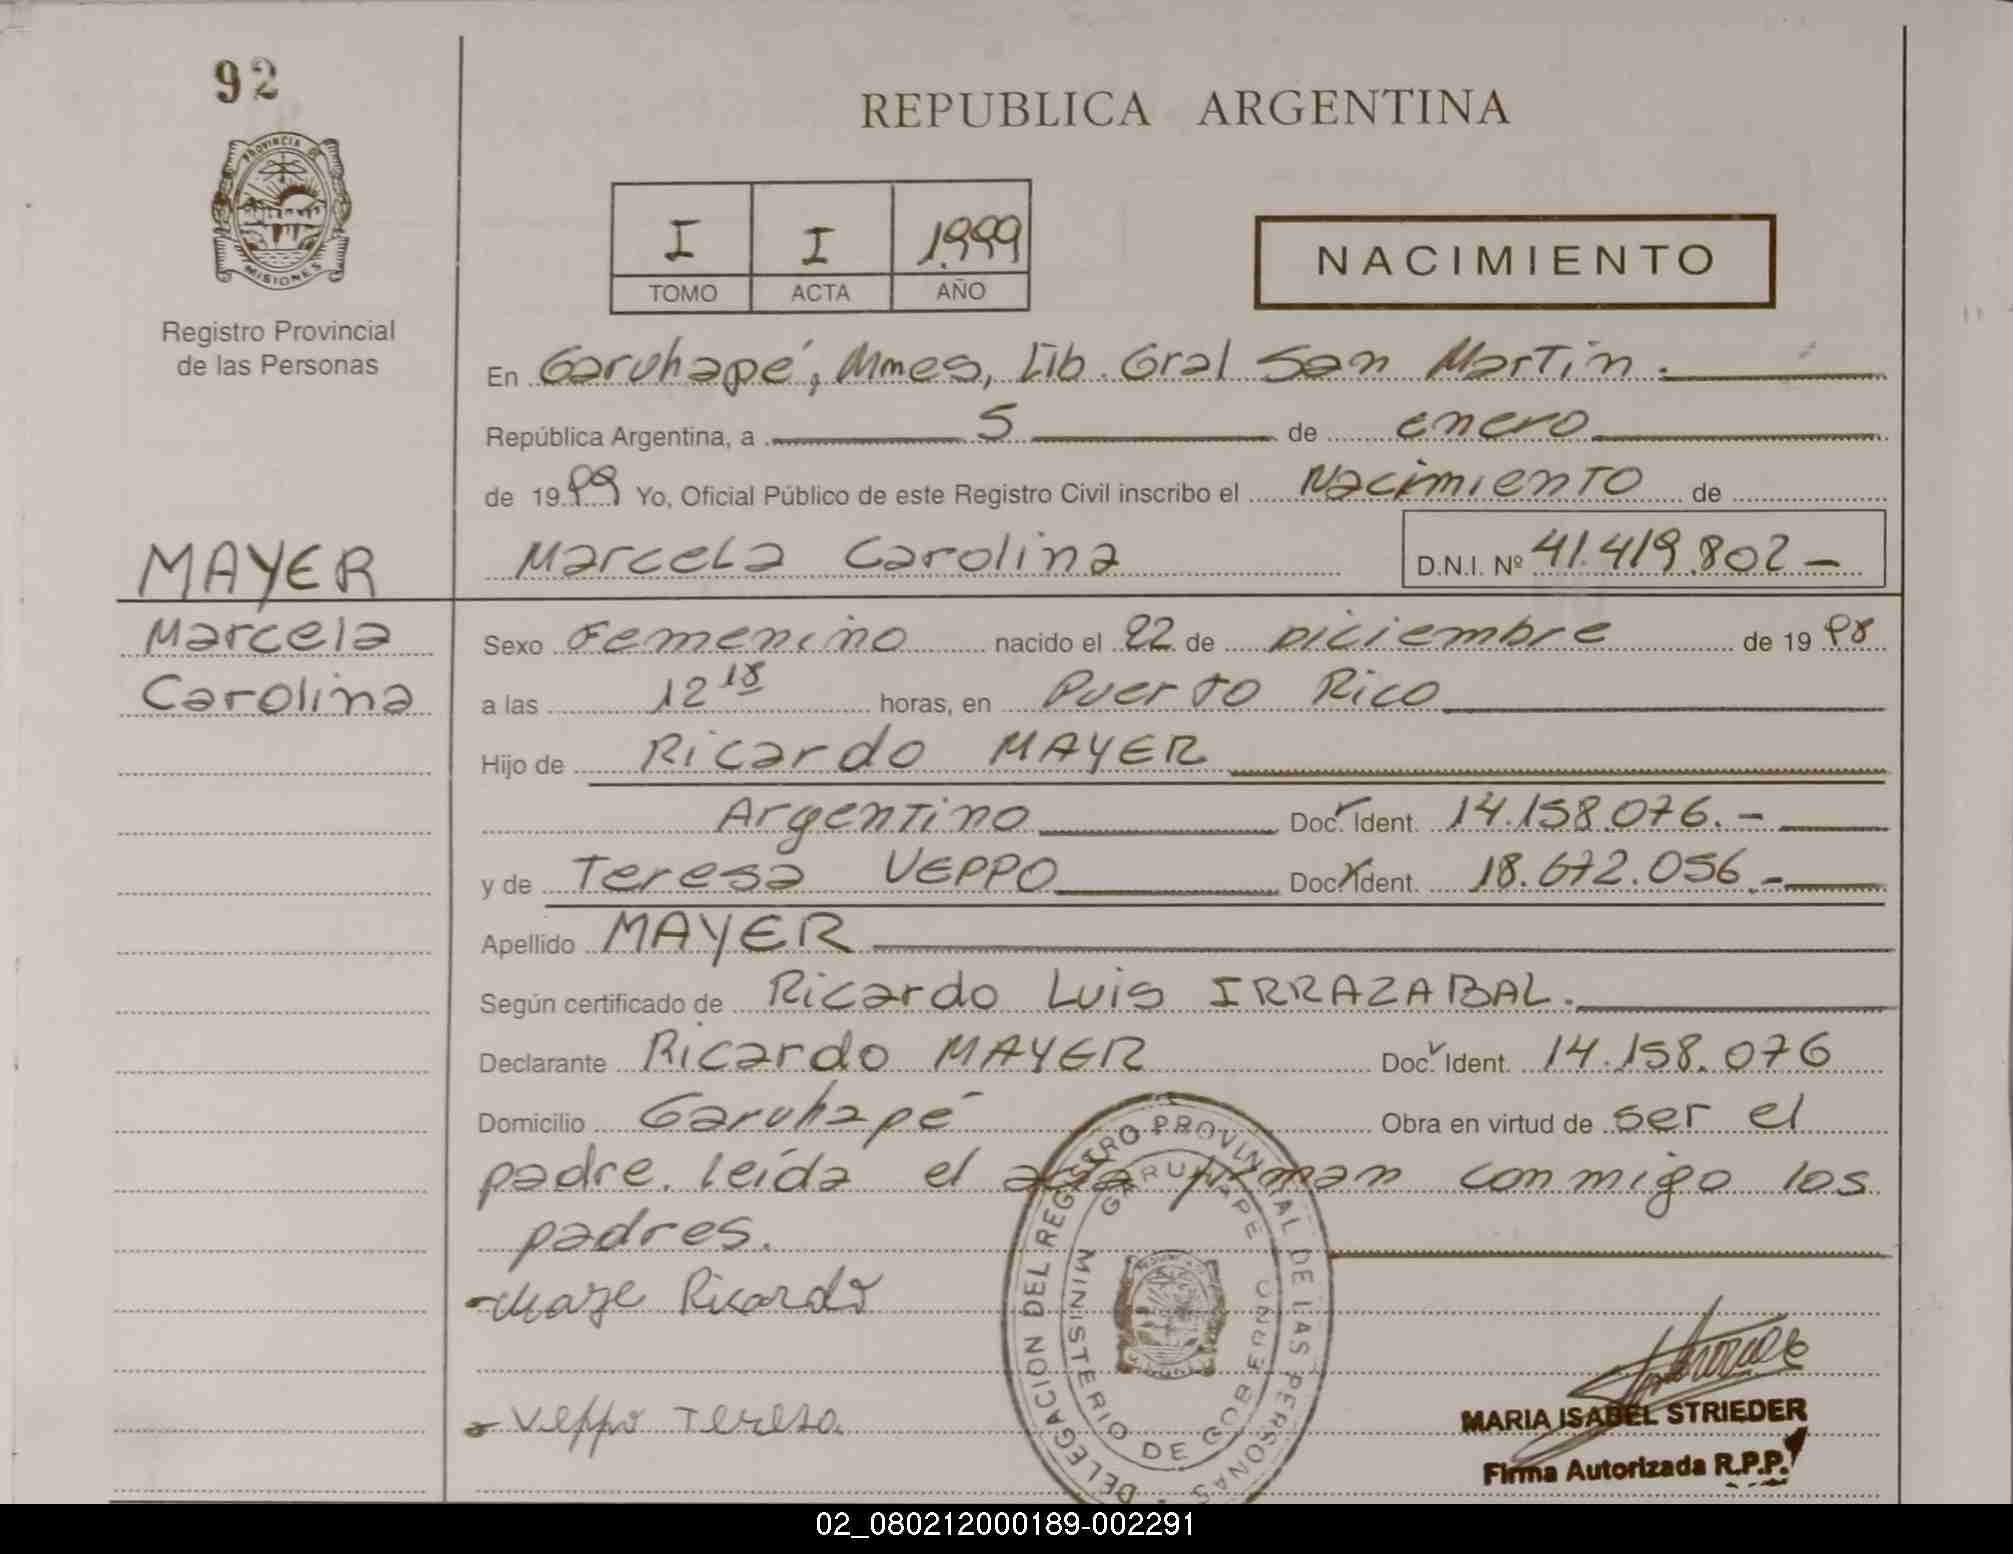 92
REPUBLICA ARGENTINA
PROVINCIA DE
MISIONES
Registro Provincial
de las Personas
I I 1.999
TOMO ACTA AÑO
NACIMIENTO
En Garuhapé, Mnes, Lib. Gral San Martin.
República Argentina, a 5 de enero
de 1999 Yo, Oficial Público de este Registro Civil inscribo el Nacimiento de
Marcela Carolina D.N.I. Nº 41.419.802-
MAYER
Marcela
Carolina
Sexo Femenino nacido el 22 de Diciembre de 1998
a las 12 18 horas, en Puerto Rico
Hijo de Ricardo MAYER
Argentino Doc. Ident. 14.158.076.-
y de Teresa VEPPO Doc. Ident. 18.672.056.-
Apellido MAYER
Según certificado de Ricardo Luis IRRAZABAL.
Declarante Ricardo MAYER Doc. Ident. 14.158.076
Domicilio Garuhapé Obra en virtud de ser el
padre. leída el acta firman conmigo los
padres.
Ricardo
Veppo Teresa
DELEGACION DEL REGISTRO PROVINCIAL DE LAS PERSONAS
GARUHAPE
MINISTERIO DE GOBIERNO
MARIA ISABEL STRIEDER
Firma Autorizada R.P.P.
02_080212000189-002291